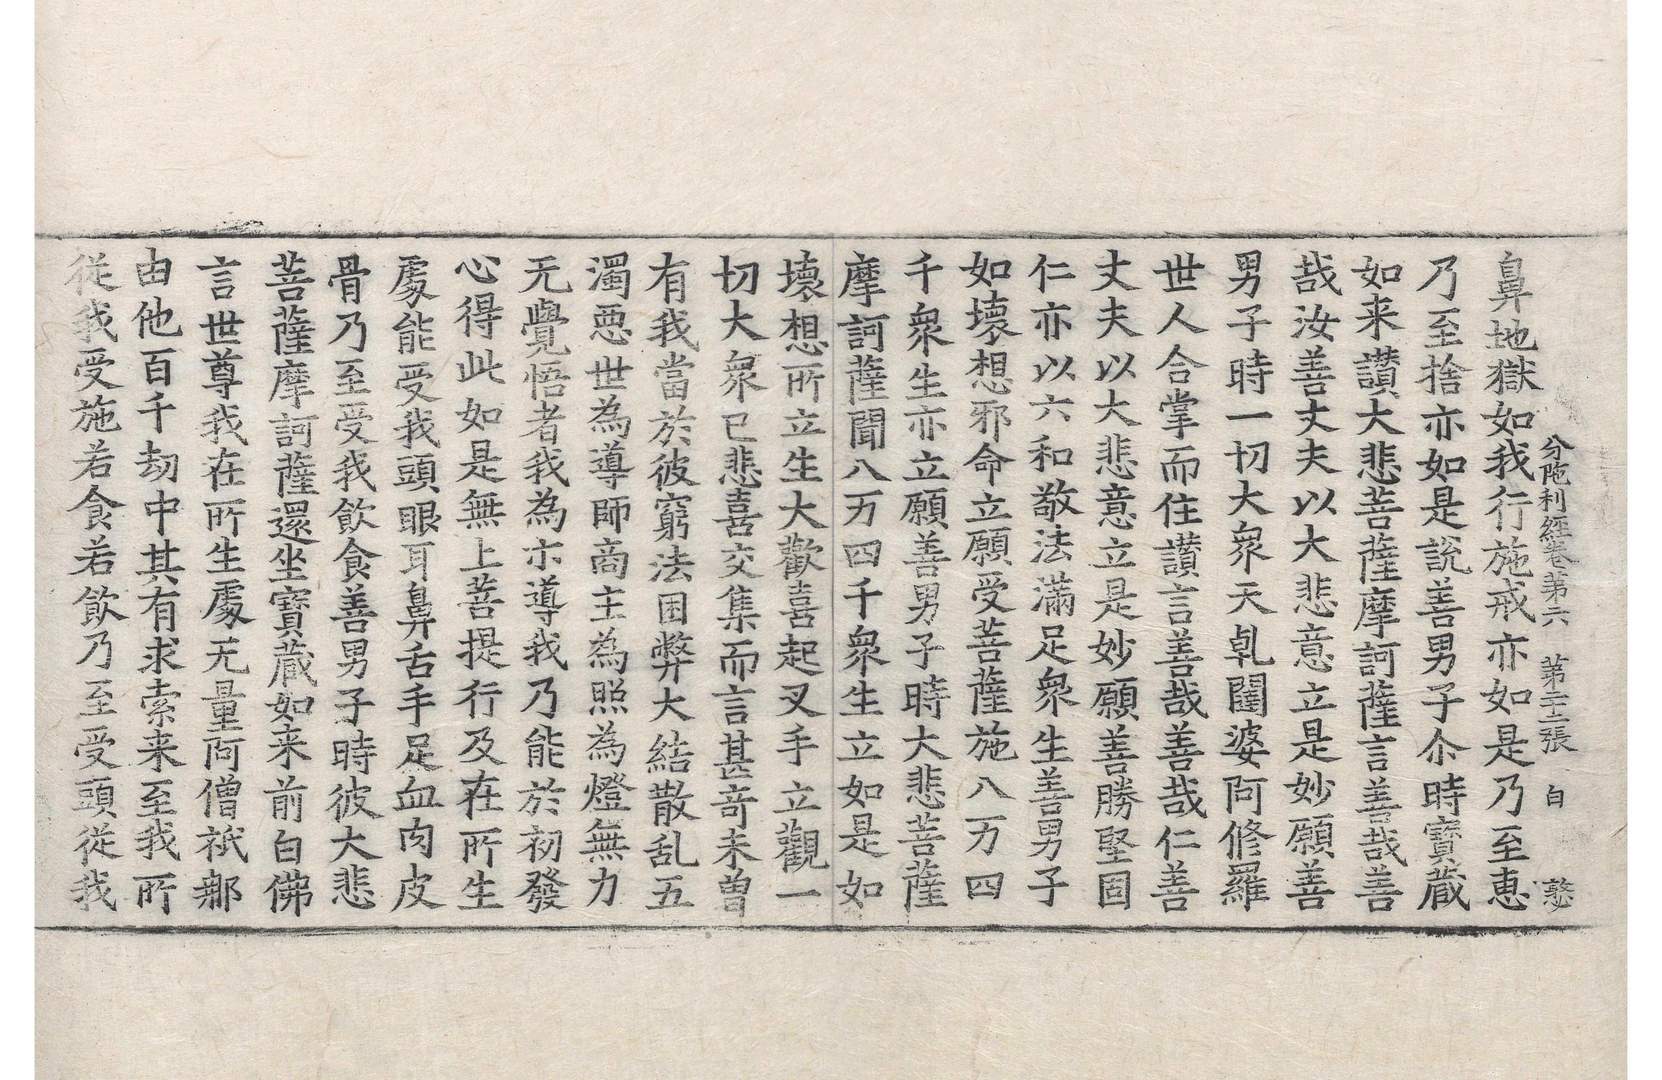 分陁利經卷第六　第二十二張　白　慜
鼻地獄如我行施戒亦如是乃至恵
乃至捨亦如是說善男子尒時寶藏
如来讃大悲菩薩摩訶薩言善哉善
哉汝善丈夫以大悲意立是妙願善
男子時一切大衆天乹闥婆阿修羅
世人合掌而住讃言善哉善哉仁善
丈夫以大悲意立是妙願善勝堅固
仁亦以六和敬法滿足衆生善男子
如壞想邪命立願受菩薩施八万四
千衆生亦立願善男子時大悲菩薩
摩訶薩聞八万四千衆生立如是如
壞想所立生大歡喜起叉手立觀一
切大衆已悲喜交集而言甚竒未曽
有我當於彼窮法困弊大結散乱五
濁惡世為導師商主為照為燈無力
无覺悟者我為示導我乃能於初發
心得此如是無上菩提行及在所生
處能受我頭眼耳鼻舌手足血肉皮
骨乃至受我飲食善男子時彼大悲
菩薩摩訶薩還坐寶藏如来前白佛
言世尊我在所生處无量阿僧祇那
由他百千劫中其有求索来至我所
從我受施若食若飲乃至受頭從我